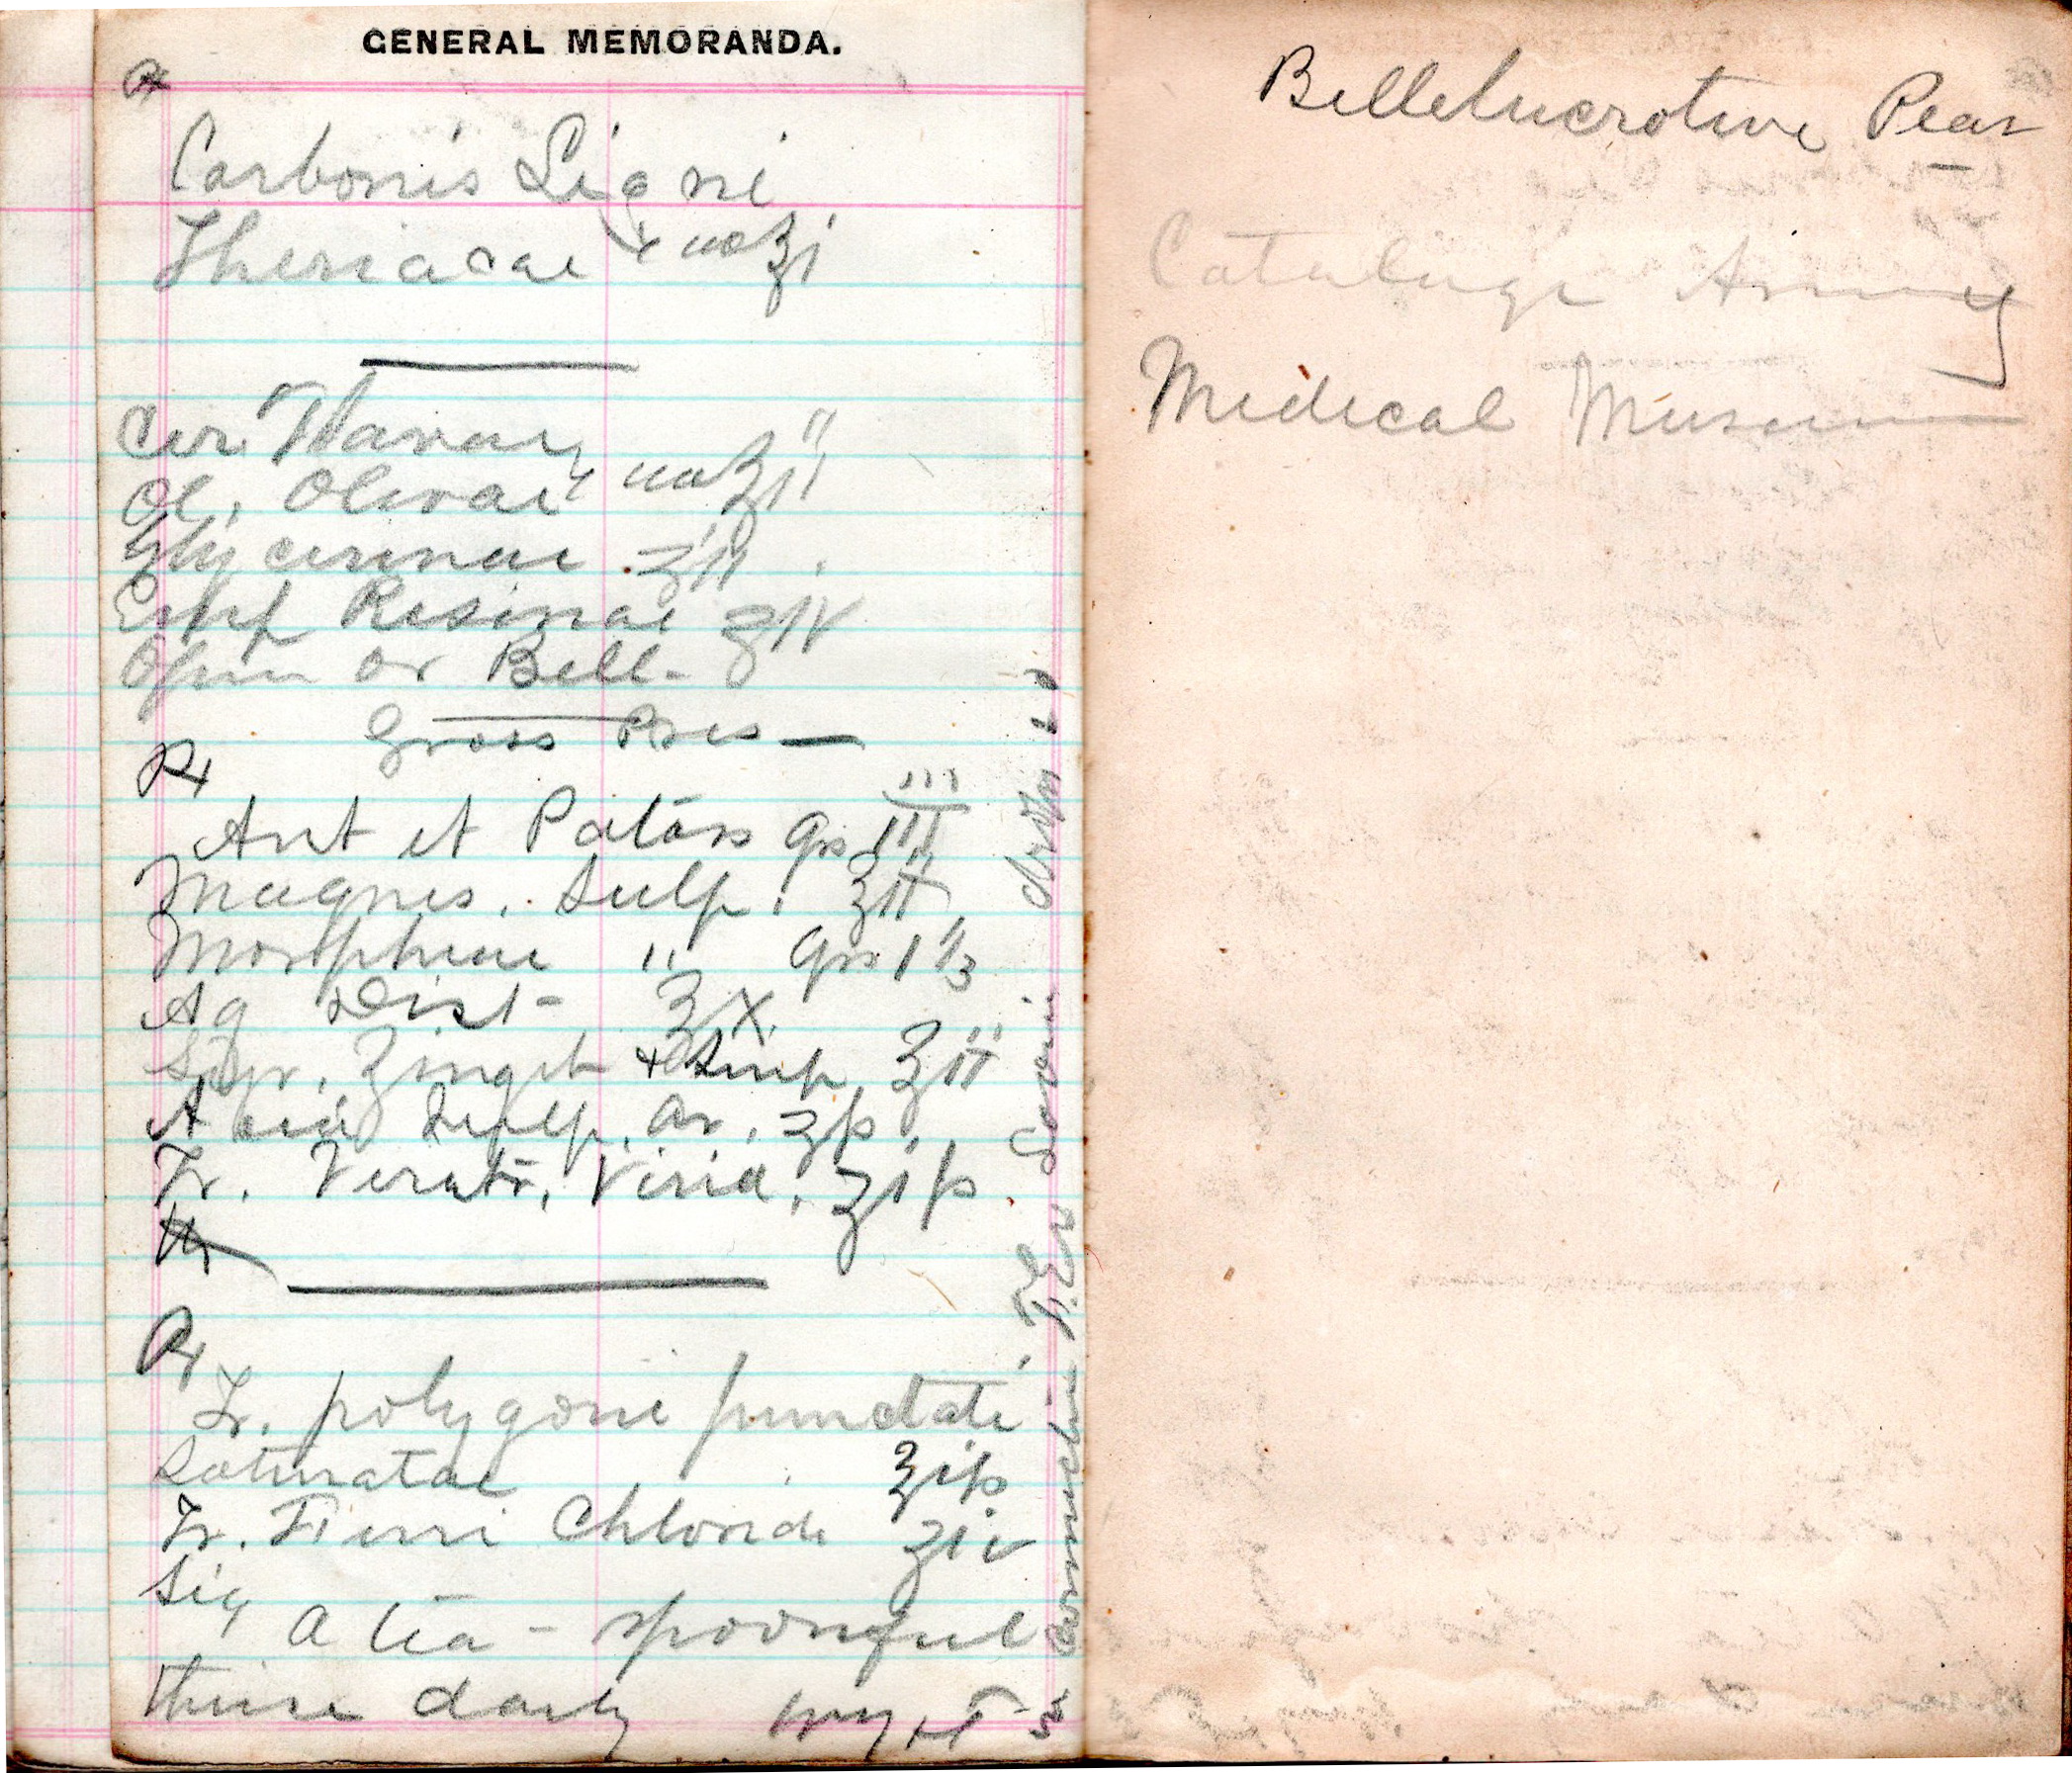 GENERAL MEMORANDA.
℞
Carbonis Ligni
Theriacae aa ʒi
Cer. Flavae
Ol. Olivae aa ʒii
Glycerinae ʒii
Emp Resinae ʒiv
Opium or Bell-
Gross Pres —
℞
Ant et Potass grs III
Magnes. Sulp. ℥ii
Morphiae " grs 1 1/3
Aq Dist - ℥x
Syr. Zingib + Simp ℥ii
Acid Sulp. Ar. ʒſs
Tr. Veratr. Virid. ʒiſs
℞
Tr. polygoni punctati
Saturatae ʒiſs
Tr. Ferri Chloride ʒiv
Sig
A tea-spoonful
thrice daily
Bellelucrotive Pear
Cataluge Army
Medical Museum